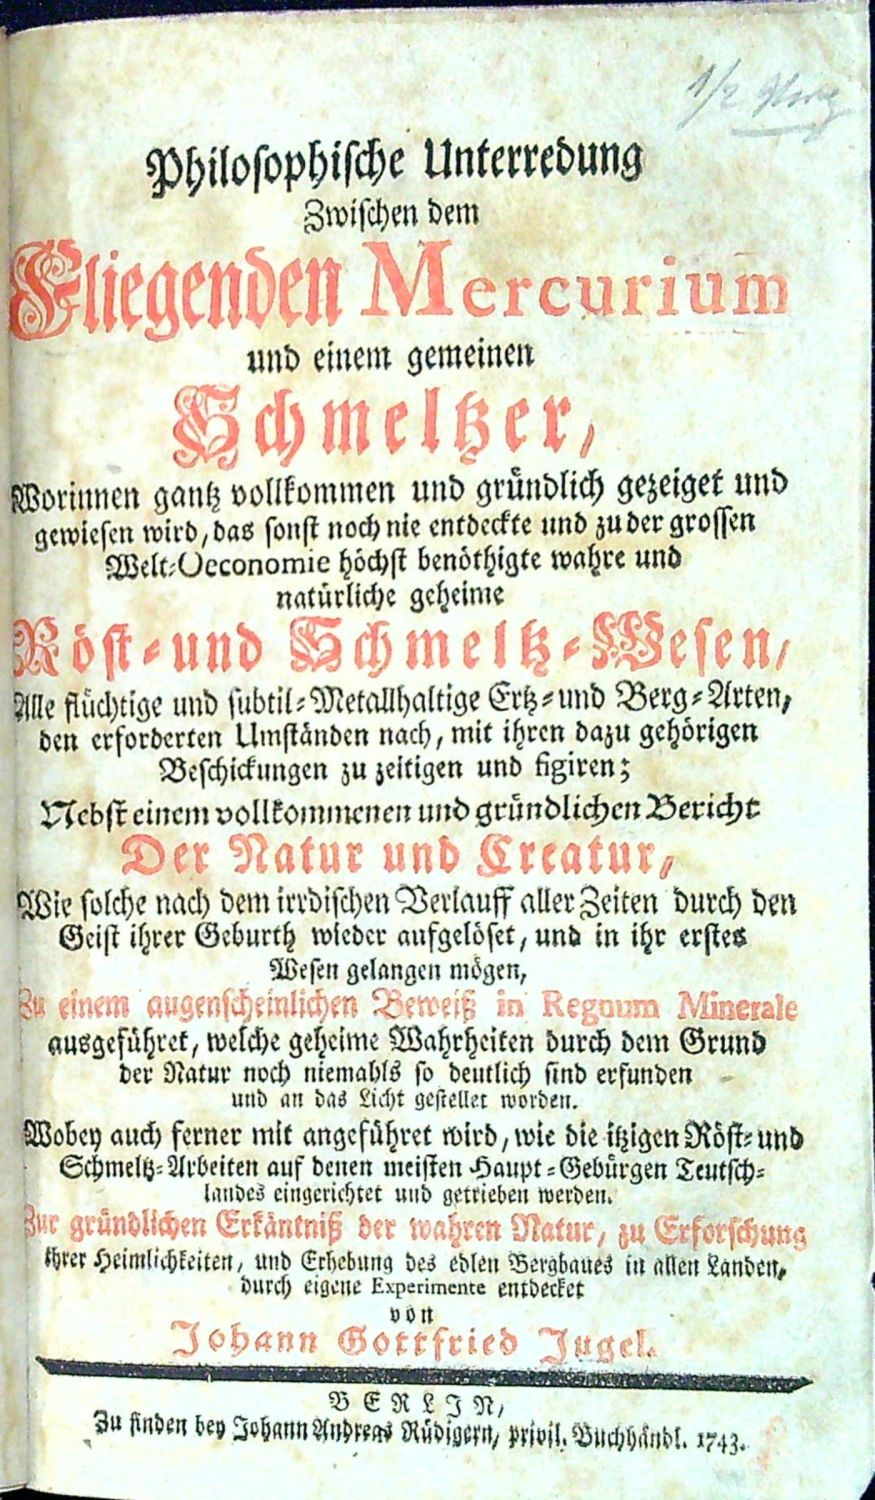 1/2
Philosophische Unterredung
Zwischen dem
Fliegenden Mercurium
und einem gemeinen
Schmeltzer,
Worinnen gantz vollkommen und gründlich gezeiget und
gewiesen wird, das sonst noch nie entdeckte und zu der grossen
Welt-Oeconomie höchst benöthigte wahre und
natürliche geheime
Röst- und Schmeltz-Wesen,
Alle flüchtige und subtil-Metallhaltige Ertz- und Berg-Arten,
den erforderten Umständen nach, mit ihren dazu gehörigen
Beschickungen zu zeitigen und figiren;
Nebst einem vollkommenen und gründlichen Bericht
Der Natur und Creatur,
Wie solche nach dem irrdischen Verlauff aller Zeiten durch den
Geist ihrer Geburth wieder aufgelöset, und in ihr erstes
Wesen gelangen mögen,
Zu einem augenscheinlichen Beweiß in Regnum Minerale
ausgeführet, welche geheime Wahrheiten durch dem Grund
der Natur noch niemahls so deutlich sind erfunden
und an das Licht gestellet worden.
Wobey auch ferner mit angeführet wird, wie die itzigen Röst- und
Schmeltz-Arbeiten auf denen meisten Haupt-Gebürgen Teutsch-
landes eingerichtet und getrieben werden.
Zur gründlichen Erkäntniß der wahren Natur, zu Erforschung
ihrer Heimlichkeiten, und Erhebung des edlen Bergbaues in allen Landen,
durch eigene Experimente entdecket
von
Johann Gottfried Jugel.
BERLIN,
Zu finden bey Johann Andreas Rüdigern, privil. Buchhändl. 1743.